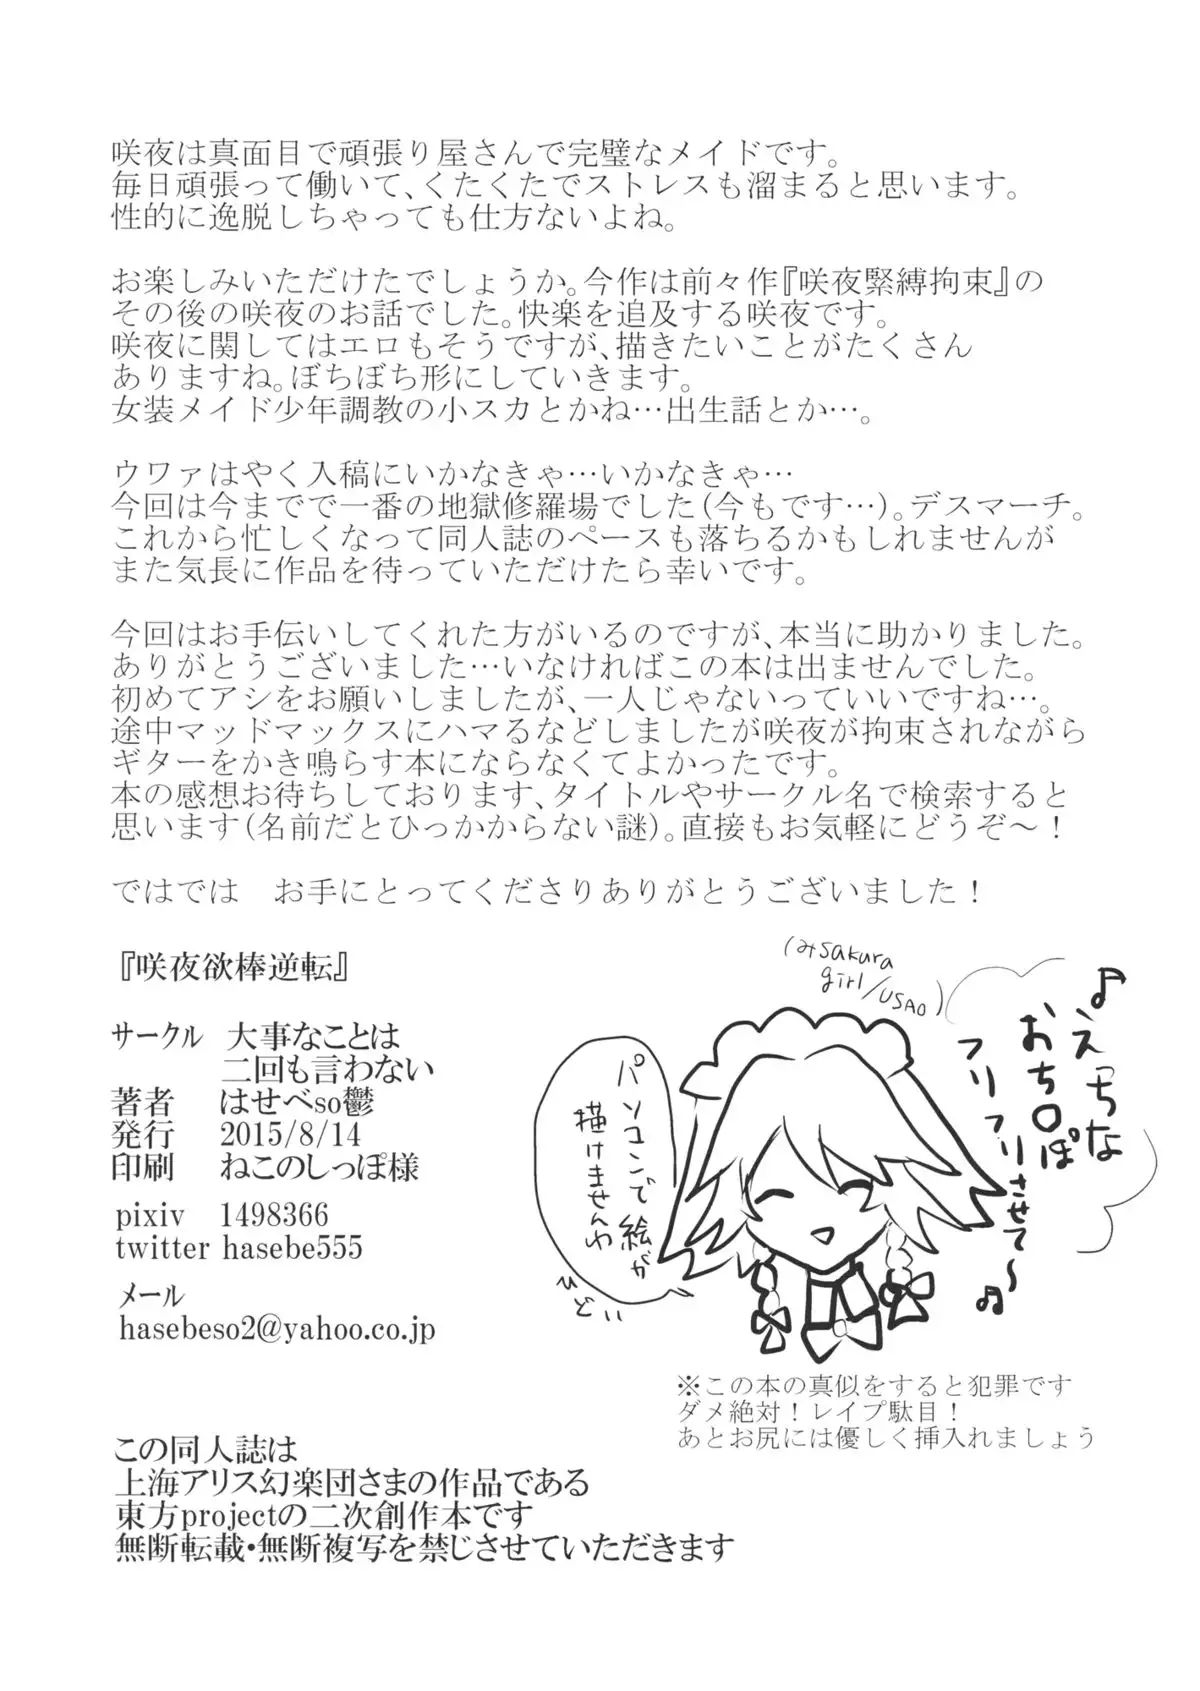 咲夜は真面目で頑張り屋さんで完璧なメイドです。
毎日頑張って働いて、くたくたでストレスも溜まると思います。
性的に逸脱しちゃっても仕方ないよね。
お楽しみいただけたでしょうか。今作は前々作『咲夜緊縛拘束』の
その後の咲夜のお話でした。快楽を追及する咲夜です。
咲夜に関してはエロもそうですが、描きたいことがたくさん
ありますね。ぼちぼち形にしていきます。
女装メイド少年調教の小スカとかね…出生話とか…。
ウワァはやく入稿にいかなきゃ…いかなきゃ…
今回は今までで一番の地獄修羅場でした(今もです…)。デスマーチ。
これから忙しくなって同人誌のペースも落ちるかもしれませんが
また気長に作品を待っていただけたら幸いです。
今回はお手伝いしてくれた方がいるのですが、本当に助かりました。
ありがとうございました…いなければこの本は出ませんでした。
初めてアシをお願いしましたが、一人じゃないっていいですね…。
途中マッドマックスにハマるなどしましたが咲夜が拘束されながら
ギターをかき鳴らす本にならなくてよかったです。
本の感想お待ちしております、タイトルやサークル名で検索すると
思います(名前だとひっかからない謎)。直接もお気軽にどうぞ～！
ではでは　お手にとってくださりありがとうございました！
『咲夜欲棒逆転』
サークル　大事なことは
二回も言わない
著者　はせべso鬱
発行　2015/8/14
印刷　ねこのしっぽ様
pixiv　1498366
twitter hasebe555
メール
hasebeso2@yahoo.co.jp
(みsakura
girl/USAO)
♪えっちな
おち〇ぽ
フリフリさせて～♫
パソコンで絵が
描けませんわ
ひどい
※この本の真似をすると犯罪です
ダメ絶対！レイプ駄目！
あとお尻には優しく挿入れましょう
この同人誌は
上海アリス幻楽団さまの作品である
東方projectの二次創作本です
無断転載・無断複写を禁じさせていただきます